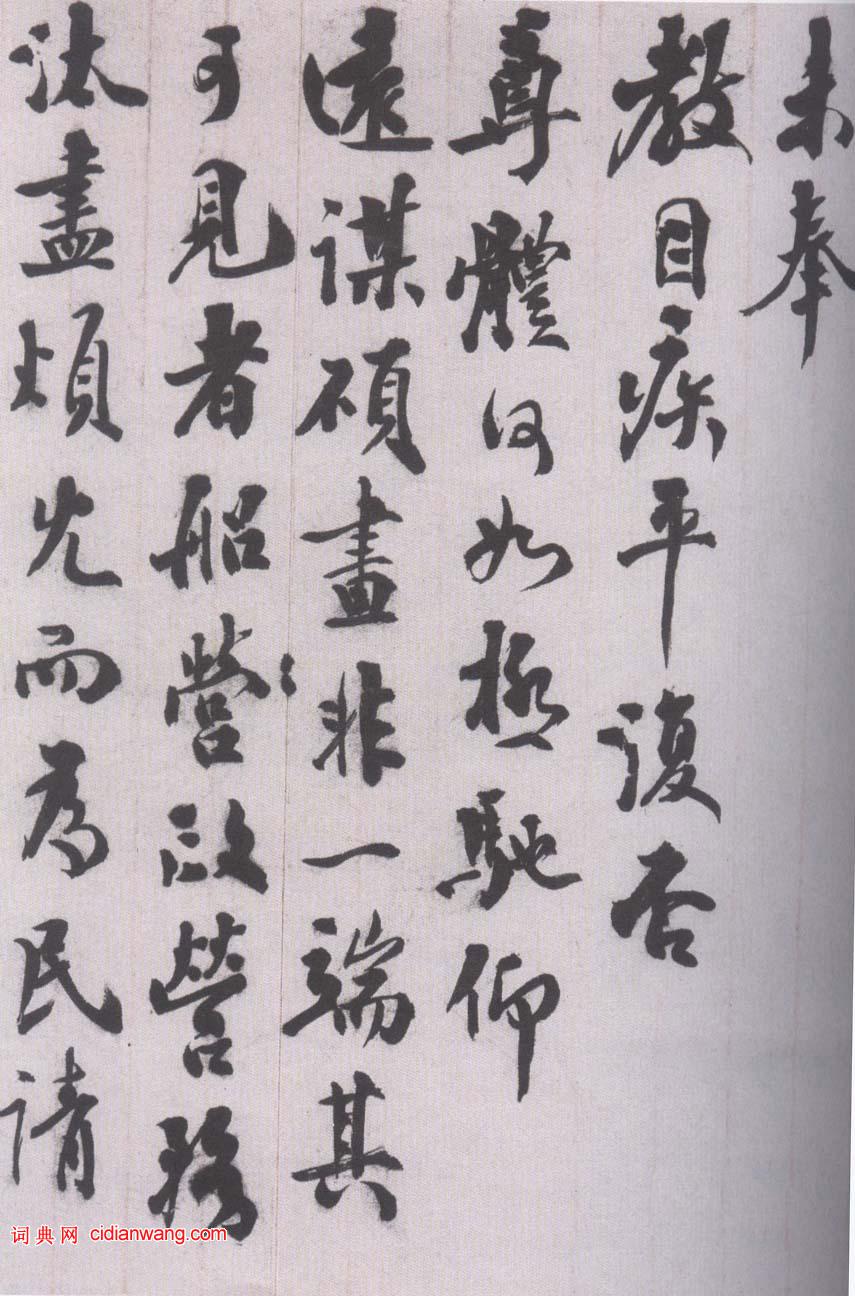 未奉
教目疾平復否
尊體何如極馳仰
遠謀碩畫非一端其
可見者船營政營務
汰盡煩冗而為民請
词典网 cidianwang.com